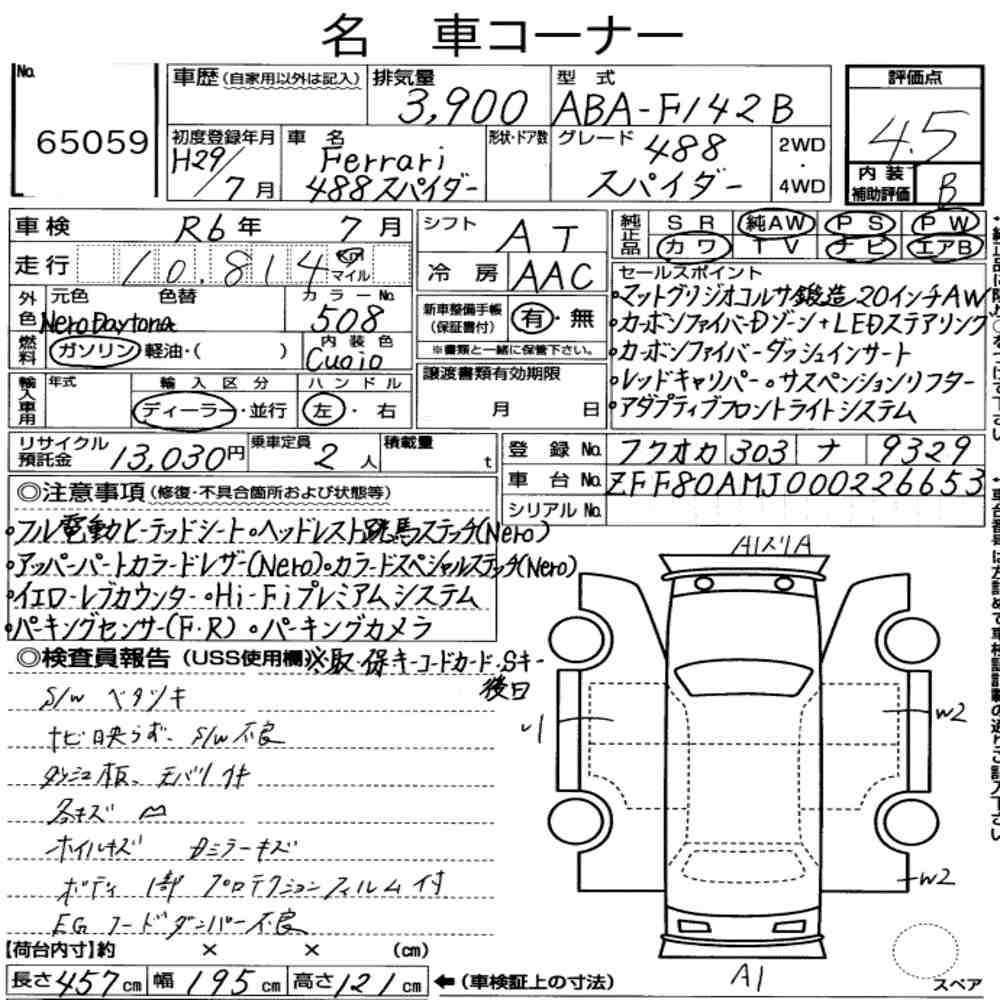 名車コーナー
No. 65059
車歴(自家用以外は記入) 排気量 3,900 型式 ABA-F142B
評価点 4.5
初度登録年月 H29/7月 車名 Ferrari 488スパイダー 形状・ドア数 グレード 488 スパイダー 2WD・4WD
内装補助評価 B
車検 R6年 7月
シフト AT
純正品 SR 純AW PS PW
カワ TV ナビ エアB
走行 10,814 km マイル
冷房 AAC
セールスポイント
外色 元色 色替 カラーNo. 508
Nero Daytona
新車整備手帳(保証書付) 有・無
※書類と一緒に保管下さい。
・マットグリジオコルサ鍛造20インチAW
・カーボンファイバーDゾーン+LEDステアリング
燃料 ガソリン 軽油・( ) 内装色 Cuoio
・カーボンファイバーダッシュインサート
譲渡書類有効期限
月 日
・レッドキャリパー・サスペンションリフター
・アダプティブフロントライトシステム
輸入車用 年式 輸入区分 ハンドル
ディーラー・並行 左・右
リサイクル預託金 13,030円 乗車定員 2人 積載量 t
登録No. フクオカ 303 ナ 9329
車台No. ZFF80AMJ000226653
シリアルNo.
◎注意事項(修復・不具合箇所および状態等)
・フル電動ヒーテッドシート・ヘッドレスト跳馬ステッチ(Nero)
・アッパーパートカラードレザー(Nero)・カラードスペシャルステッチ(Nero)
・イエローレブカウンター・Hi-Fiプレミアムシステム
・パーキングセンサー(F・R) ・パーキングカメラ
◎検査員報告(USS使用欄)※取・保キーコードカード・Sキー
後日
S/W ベタツキ
ナビ映らず、S/W不良
ダッシュ板、モバリ付
各キズ 凹
ホイルキズ Dミラーキズ
ボディ 1部 プロテクションフィルム付
EGフードダンパー不良
A1スリA
U1
W2
W2
A1
スペア
【荷台内寸】約 × × (cm)
長さ457cm 幅195cm 高さ121cm ←(車検証上の寸法)